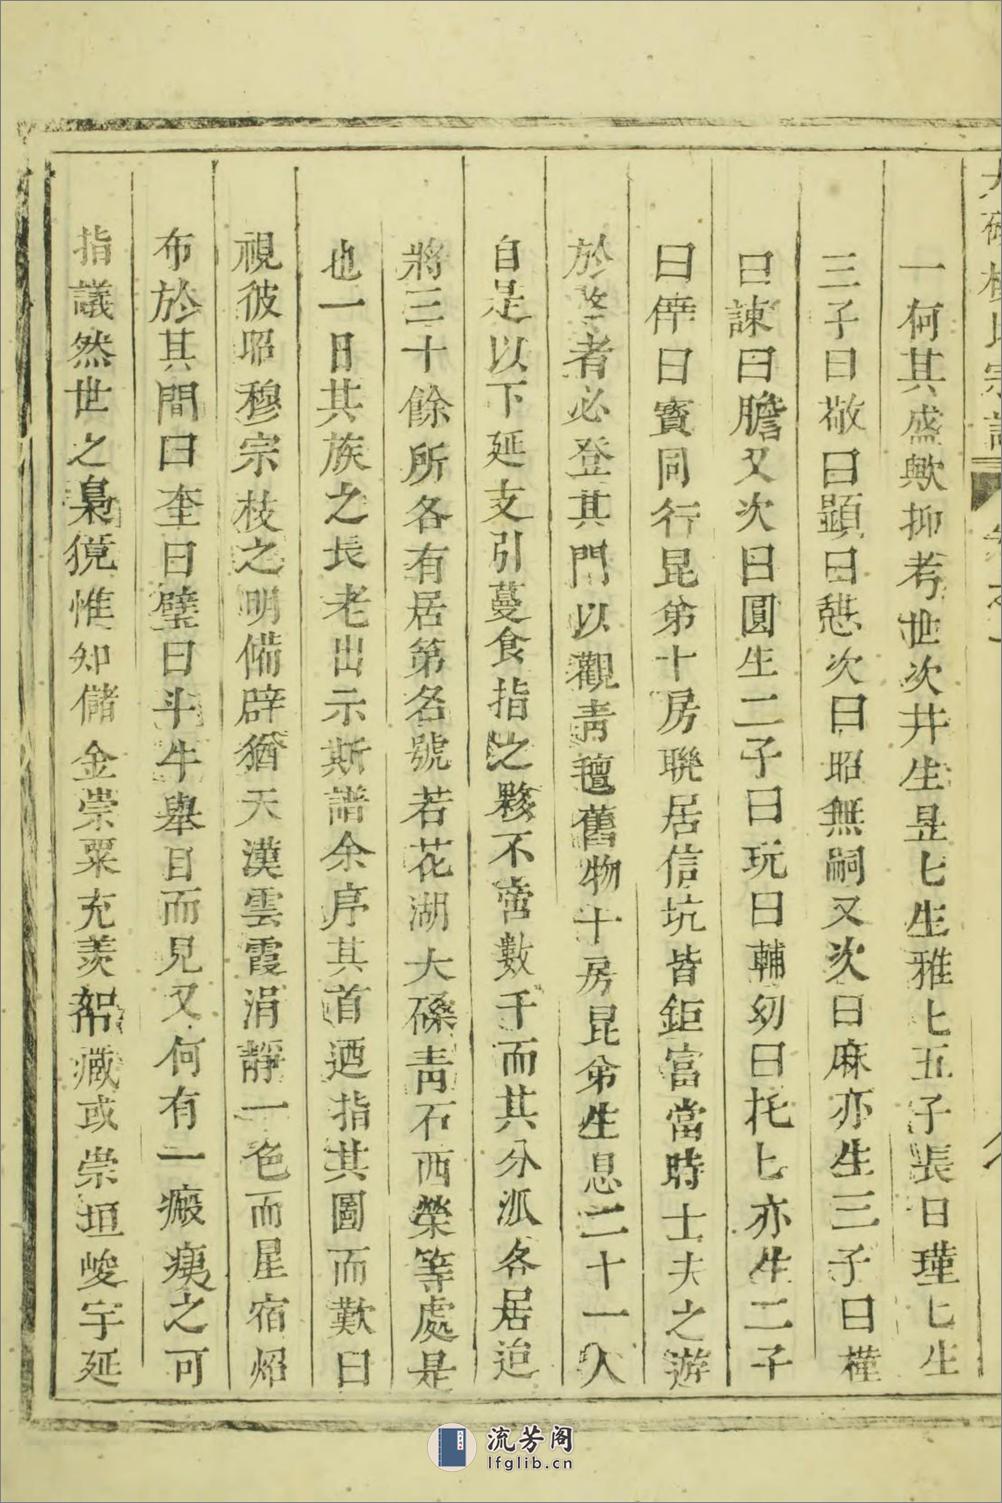 大磜楊氏宗譜
一何其盛歟抑考世次井生昱匕生雅匕五子長曰瑾匕生
三子曰敬曰顕曰慈次曰昭無嗣又次曰麻亦生三子曰權
曰諫曰膽又次曰圓生二子曰玩曰輔幼曰托匕亦生二子
曰倖曰賓同行昆弟十房聯居信坑皆鉅富當時士夫之遊
於者必登其門以觀靑氊舊物十房昆弟生息二十一人
自是以下延支引蔓食指之夥不啻數千而其分派各居迨
將三十餘所各有居第名號若花湖大磜靑石西榮等處是
也一日其族之長老出示斯譜余序其首迺指其圖而歎曰
視彼昭穆宗枝之明備辟猶天漢雲霞涓靜一色而星宿炤
布於其間曰奎曰璧曰斗牛舉目而見又何有一瘢痍之可
指議然世之梟獍惟知儲金崇粟充羡帑藏或崇垣峻宇延
流芳阁
lfglib.cn